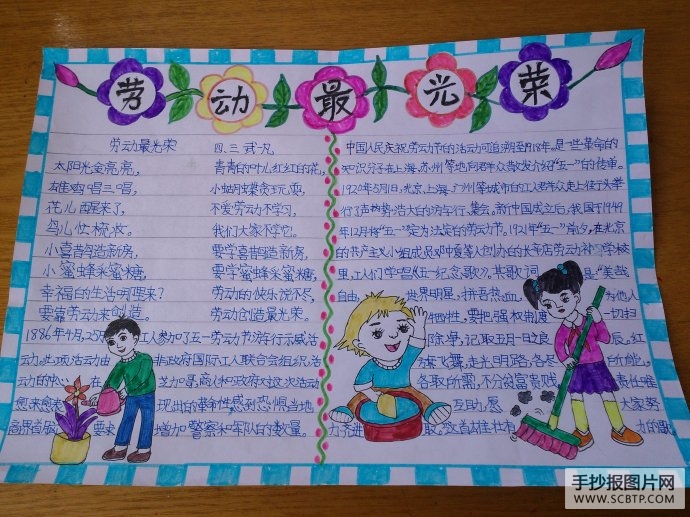 劳动最光荣
劳动最光荣 四、三 武凡
太阳光金亮亮, 青青的叶儿红红的花,
雄鸡唱三唱, 小蝴蝶贪玩耍,
花儿醒来了, 不爱劳动不学习,
鸟儿忙梳妆。 我们大家不学它。
小喜鹊造新房, 要学喜鹊造新房,
小蜜蜂采蜜糖, 要学蜜蜂采蜜糖,
幸福的生活哪里来? 劳动的快乐说不尽,
要靠劳动来创造。 劳动创造最光荣。
1886年4月,25 工人参加了五一劳动节游行示威活
动。此项活动由 非政府国际工人联合会组织活
动的中心 芝加哥商人和政府对这次活动
愈来愈 现出的革命性感到恐惧当地
商界首届 要求 增加警察和军队的数量。
中国人民庆祝劳动节的活动可追溯至1918年,是一些革命的
知识分子在上海、苏州等地向群众散发介绍"五一"的传单。
1920年5月1日,北京、上海、广州等城市的工人群众走上街头举
行了声势浩大的游行、集会,新中国成立后,我国于1949
年12月将"五一"定为法定的劳动节。1921年"五一"前夕,在北京
的共产主义小组成员邓中夏等人创办的长辛店劳动补习学校
里,工人们学唱《五一纪念歌》。其歌词 是"美哉
自由, 世界明星,拼吾热血, 为他人
牺牲,要把强权制度 一切扫
除净,记取五月一日之良 辰。红
旗飞舞,走光明路,各尽 所能,
各取所需,不分贫富贵贱 责任唯
互助,愿 大家努
力齐进取。这首雄壮有 力的歌
手抄报图片网
WWW.SCBTP.COM